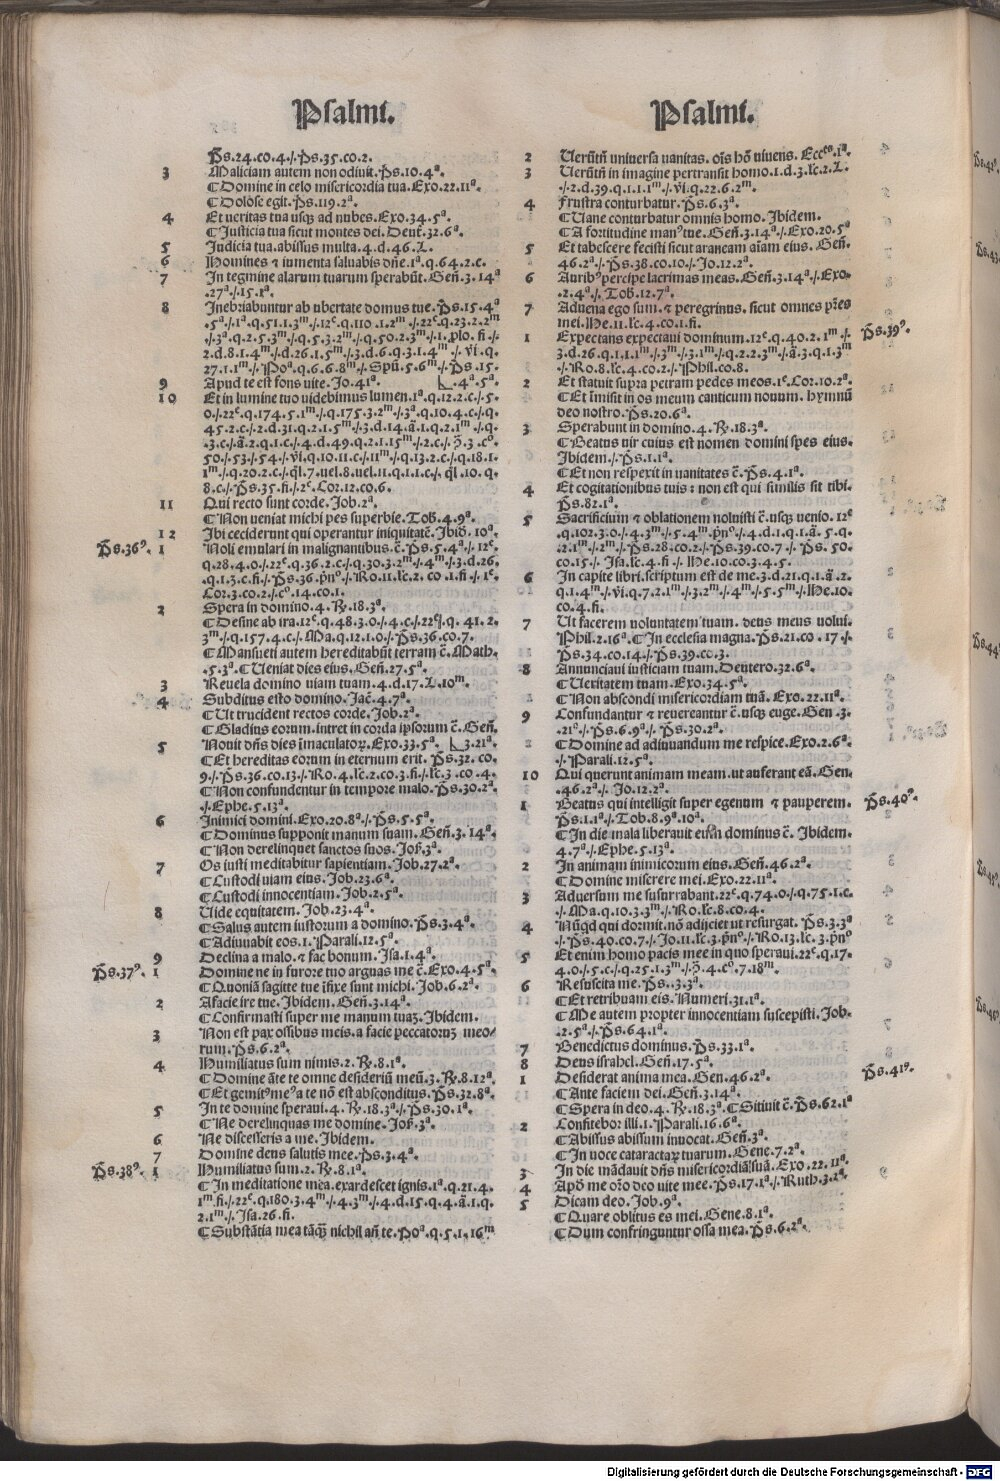 Psalmi.
P̄s.24.co.4./.P̄s.35.co.2.
3 Maliciam autem non odiuit.P̄s.10.4ª.
¶Domine in celo misericordia tua.Exo.22.11ª.
¶Dolose egit.P̄s.119.2ª.
4 Et ueritas tua usq̄ ad nubes.Exo.34.5ª.
¶Iusticia tua sicut montes dei.Deut̄.32.6ª.
5 Iudicia tua.abissus multa.4.d.46.L.
6 Homines ⁊ iumenta saluabis dn̄e.1ª.q.64.2.c.
7 In tegmine alarum tuarum sperabūt.Gen̄.3.14ª
.27ª./.15.1ª.
8 Inebriabuntur ab ubertate domus tue.P̄s.15.4ª
.5ª./.1ª.q.51.1.3ᵐ./.12ᵉ.q.110.1.2ᵐ./.22ᵉ.q.23.2.2ᵐ
./.3ª.q.2.5.3ᵐ./.q.5.3.2ᵐ./.q.50.2.3ᵐ./.1.plo.fi./.
2.d.8.1.4ᵐ./.d.26.1.5ᵐ./.3.d.6.q.3.1.4ᵐ ./.vi.q.
27.1.1ᵐ./.Poª.q.6.6.8ᵐ./.Spū.5.6ᵐ./.P̄s.15.
9 Apud te est fons uite.Io.41ª. .4ª.5ª.
10 Et in lumine tuo uidebimus lumen.1ª.q.12.2.c./.5
0./.22ᵉ.q.174.5.1ᵐ./.q.175.3.2ᵐ./.3ª.q.10.4.c./.q.
45.2.c./.2.d.31.q.2.1.5ᵐ./.3.d.14.ā.1.q.2.1ᵐ./.q.
.3.c./.ā.2.q.1.c./.4.d.49.q.2.1.15ᵐ./.2.c./.
50./.53./.54./.vi.q.10.11.c./.11ᵐ./.q.13.2.c./.q.18.1.
1ᵐ./.q.20.2.c./.q̄l.7.uel.8.uel.11.q.1.1.c./.q̄l.10.q.
8.c./.P̄s.35.fi./.2ᵉ.Cor.12.co.6.
11 Qui recto sunt corde.Iob.2ª.
¶Non ueniat michi pes superbie.Tob̄.4.9ª.
12 Ibi ceciderunt qui operantur iniquitatē.Ibid̄.10ª.
P̄s.36⁹. 1 Noli emulari in malignantibus.c̄.P̄s.5.4ª./.12ᵉ.
q.28.4.0./.22ᵉ.q.36.2.c./.q.30.3.2ᵐ./.4ᵐ./.3.d.26.
.q.1.3.c.fi./.P̄s.36.p̄n⁰./.Ro.11.lc̄.2. co .1.fi./.1ᵉ.
Cor.3.co.2./.c⁰.14.co.1.
2 Spera in domino.4.Ry̶.18.3ª.
¶Desine ab ira.12ᵉ.q.48.3.0./.4.c./.22ᵉ.q. 41.2.
3ᵐ./.q.157.4.c./.Ma.q.12.1.0./.P̄s.36.co.7.
¶Mansueti autem hereditabūt terram c̄.Math.
.5.3ª.¶Ueniat dies eius.Gen̄.27.5ª.
3 Reuela domino uiam tuam.4.d.17.L.10ᵐ.
4 Subditus esto domino.Iac̄.4.7ª.
¶Ut trucident rectos corde.Iob.2ª.
¶Gladius eorum.intret in corda ipsorum c̄.Gen̄.
5 Nouit dn̄s dies īmaculatoꝝ.Exo.33.5ª. .3.21ª.
¶Et hereditas eorum in eternum erit. P̄s.32. co.
9./.P̄s.36.co.13./.Ro.4.lc̄.2.co.3.fi./.lc̄.3 .co.4.
¶Non confundentur in tempore malo.P̄s.30.2ª.
./.Ephe.5.13ª.
6 Inimici domini.Exo.20.8ª./.P̄s.5.5ª.
¶Dominus supponit manum suam.Gen̄.3.14ª.
¶Non derelinquet sanctos suos.Ios̄.3ª.
7 Os iusti meditabitur sapientiam.Iob.27.2ª.
¶Custodi uiam eius.Iob.23.6ª.
¶Custodi innocentiam.Iob.2.5ª.
8 Uide equitatem.Iob.23.4ª.
¶Salus autem iustorum a domino.P̄s.3.4ª.
¶Adiuuabit eos.1.Parali.12.5ª.
9 Declina a malo.⁊ fac bonum.Isa.1.4ª.
P̄s.37⁹. 1 Domine ne in furore tuo arguas me c̄.Exo.4.5ª.
¶Quoniā sagitte tue īfixe sunt michi.Iob.6.2ª.
2 Afacie ire tue.Ibidem.Gen̄.3.14ª.
¶Confirmasti super me manum tuaꝫ.Ibidem.
3 Non est pax ossibus meis.a facie peccatorum meo/
rum.P̄s.6.2ª.
4 Humiliatus sum nimis.2.Ry̶.8.1ª.
¶Domine āte te omne desideriū meū.3.Ry̶.8.12ª.
¶Et gemit⁹me⁹a te nō est absconditus.P̄s.32.8ª.
5 In te domine speraui.4.Ry̶.18.3ª./.P̄s.30.1ª.
¶Ne derelinquas me domine.Ios̄.3ª.
6 Ne discesseris a me.Ibidem.
7 Domine deus salutis mee.P̄s.3.4ª.
P̄s.38⁹. 1 Humiliatus sum.2.Ry̶.8.1ª.
¶In meditatione mea.exardescet ignis.1ª.q.21.4.
1ᵐ.fi./.22ᵉ.q.180.3.4ᵐ./.4.3ᵐ./.4.d.15.q.4.ā.1.q.
2.1ᵐ./.Isa.26.fi.
¶Substātia mea tāq̄ꝫ nichil an̄ te.Poª.q.5.1.16ᵐ
Psalmi.
2 Uerūtn̄ uniuersa uanitas.oīs hō uiuens. Eccᵗᵉˢ.1ª.
3 Uerūtn̄ in imagine pertransit homo.1.d.3.lc̄.2.L.
./.2.d.39.q.1.1.1ᵐ./.vi.q.22.6.2ᵐ.
4 Frustra conturbatur.P̄s.6.3ª.
¶Uane conturbatur omnis homo.Ibidem.
¶A fortitudine man⁹tue.Gen̄.3.14ª./.Exo.20.5ª
5 Et tabescere fecisti sicut araneam aīam eius. Gen̄.
46.2ª./.P̄s.38.co.10./.Io.12.2ª.
6 Aurib⁹percipe lacrimas meas.Gen̄.3.14ª./.Exo.
.2.4ª./.Tob̄.12.7ª.
7 Aduena ego sum.⁊ peregrinus.sicut omnes pr̄es
mei.He.11.lc̄.4.co.1.fi.
1 Expectans expectaui dominum.12ᵉ.q.40.2.1ᵐ./. P̄s.39⁹.
3.d.26.q.1.1.1ᵐ./.3ᵐ./.3.1ᵐ./.q.2.2.3ᵐ./.ā.3.q.1.3ᵐ
./.Ro.8.lc̄.4.co.2./.Phil.co.8.
2 Et statuit supra petram pedes meos.1ᵉ.Cor.10.2ª.
¶Et īmisit in os meum canticum nouum. hymnū
deo nostro.P̄s.20.6ª.
3 Sperabunt in domino.4.Ry̶.18.3ª.
¶Beatus uir cuius est nomen domini spes eius.
Ibidem./.P̄s.1.1ª.
¶Et non respexit in uanitates c̄.P̄s.4.1ª.
4 Et cogitationibus tuis : non est qui similis sit tibi.
P̄s.82.1ª.
5 Sacrificium ⁊ oblationem noluisti c̄.usq̄ uenio.12ᵉ
.q.102.3.0./.4.3ᵐ./.5.4ᵐ.p̄n⁰./.4.d.1.q.1.ā.5.q.
.2.1ᵐ./.2ᵐ./.P̄s.28.co.2./.P̄s.39.co.7 ./. P̄s. 50.
co.15./. Isa.lc̄.4.fi./.He.10.co.3.4.5.
6 In capite libri.scriptum est de me.3.d.21.q.1.ā.2.
q.1.4ᵐ./.vi.q.7.2.1ᵐ./.3.2ᵐ./.4ᵐ./.5.5ᵐ./.He.10.
co.4.fi.
7 Ut facerem uoluntatem tuam. deus meus uolui.
Phil.2.16ª.¶In ecclesia magna.P̄s.21.co .17./.
P̄s.34.co.14./.P̄s.39.co.3.
8 Annunciaui iusticiam tuam.Deutero.32.6ª.
¶Ueritatem tuam.Exo.34.5ª.
¶Non abscondi misericordiam tuā.Exo.22.11ª.
9 Confundantur ⁊ reuereantur c̄.usq̄ euge.Gen.3.
.21ª./.P̄s.6.9ª./.P̄s.30.2ª.
¶Domine ad adiuuandum me respice.Exo.2.6ª.
./.Parali.12.5ª.
10 Qui querunt animam meam.ut auferant eā.Gen.
.46.2ª./.Io.12.2ª.
1 Beatus qui intelligit super egenum ⁊ pauperem. P̄s.40⁹.
P̄s.1.1ª./.Tob.8.9ª.10ª.
¶In die mala liberauit eum dominus c̄. Ibidem.
4.7ª./.Ephe.5.13ª.
2 In animam inimicorum eius.Gen̄.46.2ª.
¶Domine miserere mei.Exo.22.11ª.
3 Aduersum me susurrabant.22ᵉ.q.74.0./.q.75.1.c.
./.Ma.q.10.3.3ᵐ./.Ro.lc̄.8.co.4.
4 Nūqd qui dormit.nō adijciet ut resurgat. P̄s.3.3ª
./.P̄s.40.co.7./.Io.11.lc̄.3.p̄n⁰./.Ro.13.lc̄.3.p̄n⁰
5 Et enim homo pacis mee in quo speraui.22ᵉ.q.17.
4.0./.5.c./.q.25.1.3ᵐ./. .4.c⁰.7.18ᵐ.
6 Resuscita me.P̄s..3.3ª.
¶Et retribuam eis.Numeri.31.1ª.
¶Me autem propter innocentiam suscepisti.Iob.
.2.5ª./.P̄s.64.1ª.
7 Benedictus dominus.P̄s.33.1ª.
8 Deus israhel.Gen̄.17.5ª.
1 Desiderat anima mea.Gen.46.2ª. P̄s.41⁹.
¶Ante faciem dei.Gen̄.3.14ª.
¶Spera in deo.4.Ry̶.18.3ª.¶Sitiuit c̄.P̄s.62.1ª
2 Confitebor illi.1.Parali.16.6ª.
¶Abissus abissum inuocat.Gen̄.3ª.
¶In uoce cataractaꝝ tuarum.Gene.7.2ª.
3 In die mādauit dn̄s misericordiā suā.Exo.22.11ª.
4 Apd̄ me or̄o deo uite mee.P̄s.17.1ª./.Ruth.3.2ª.
5 Dicam deo.Iob.9ª.
¶Quare oblitus es mei.Gene.8.1ª.
¶Dum confringuntur ossa mea.P̄s.6.2ª.
Digitalisierung gefördert durch die Deutsche Forschungsgemeinschaft - DFG